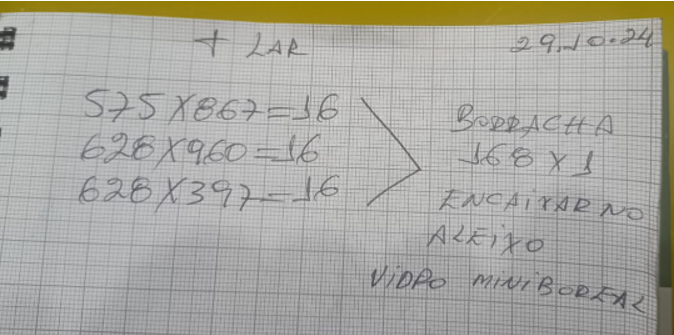 + LAR
29.10.24
575X867=16
628X960=16
628X397=16
BORRACHA
168 X 1
ENCAIXAR NO
ALEIXO
VIDRO MINIBOREAL